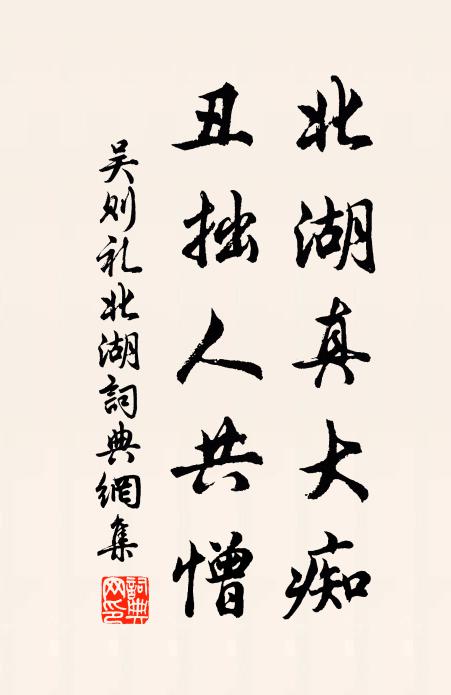 北湖真大痴
丑拙人共憎
吴则礼北湖詞典網集
詞典网印